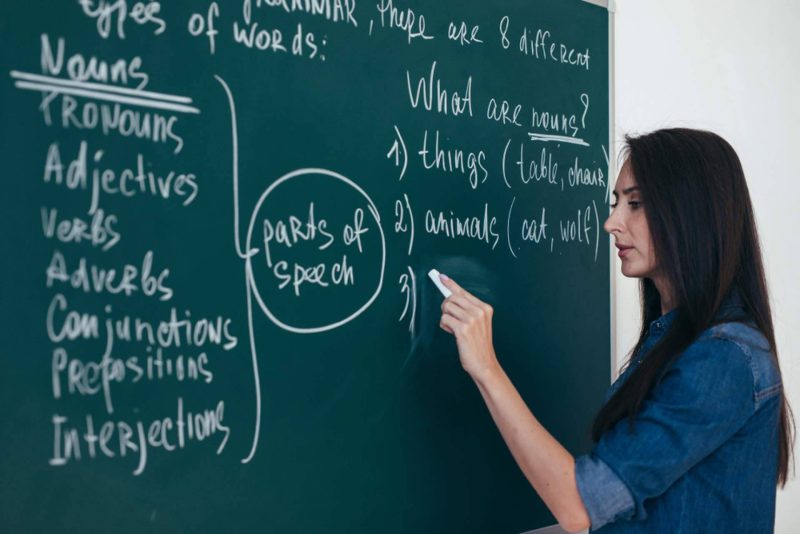 types GRAMMAR, there are 8 different
of words:
Nouns
PRONOUNS
Adjectives
Verbs
Adverbs
Conjunctions
Prepositions
Interjections
parts of
speech
What are nouns?
1) things (table, chair)
2) animals (cat, wolf)
3)